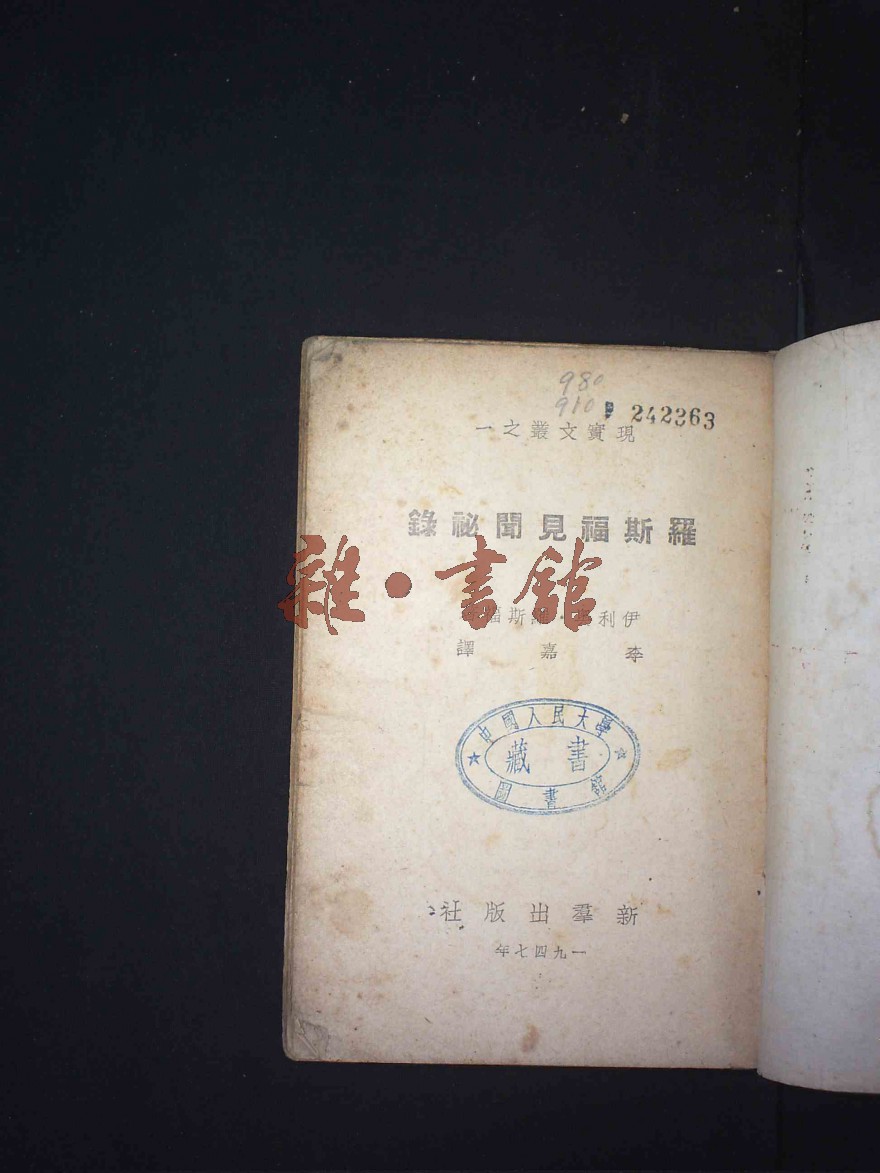 980
910
242263
現實文叢之一
羅斯福見聞祕錄
雜·書館
伊利·羅斯福
李嘉譯
中國人民大學
藏書
圖書館
新羣出版社
一九四七年